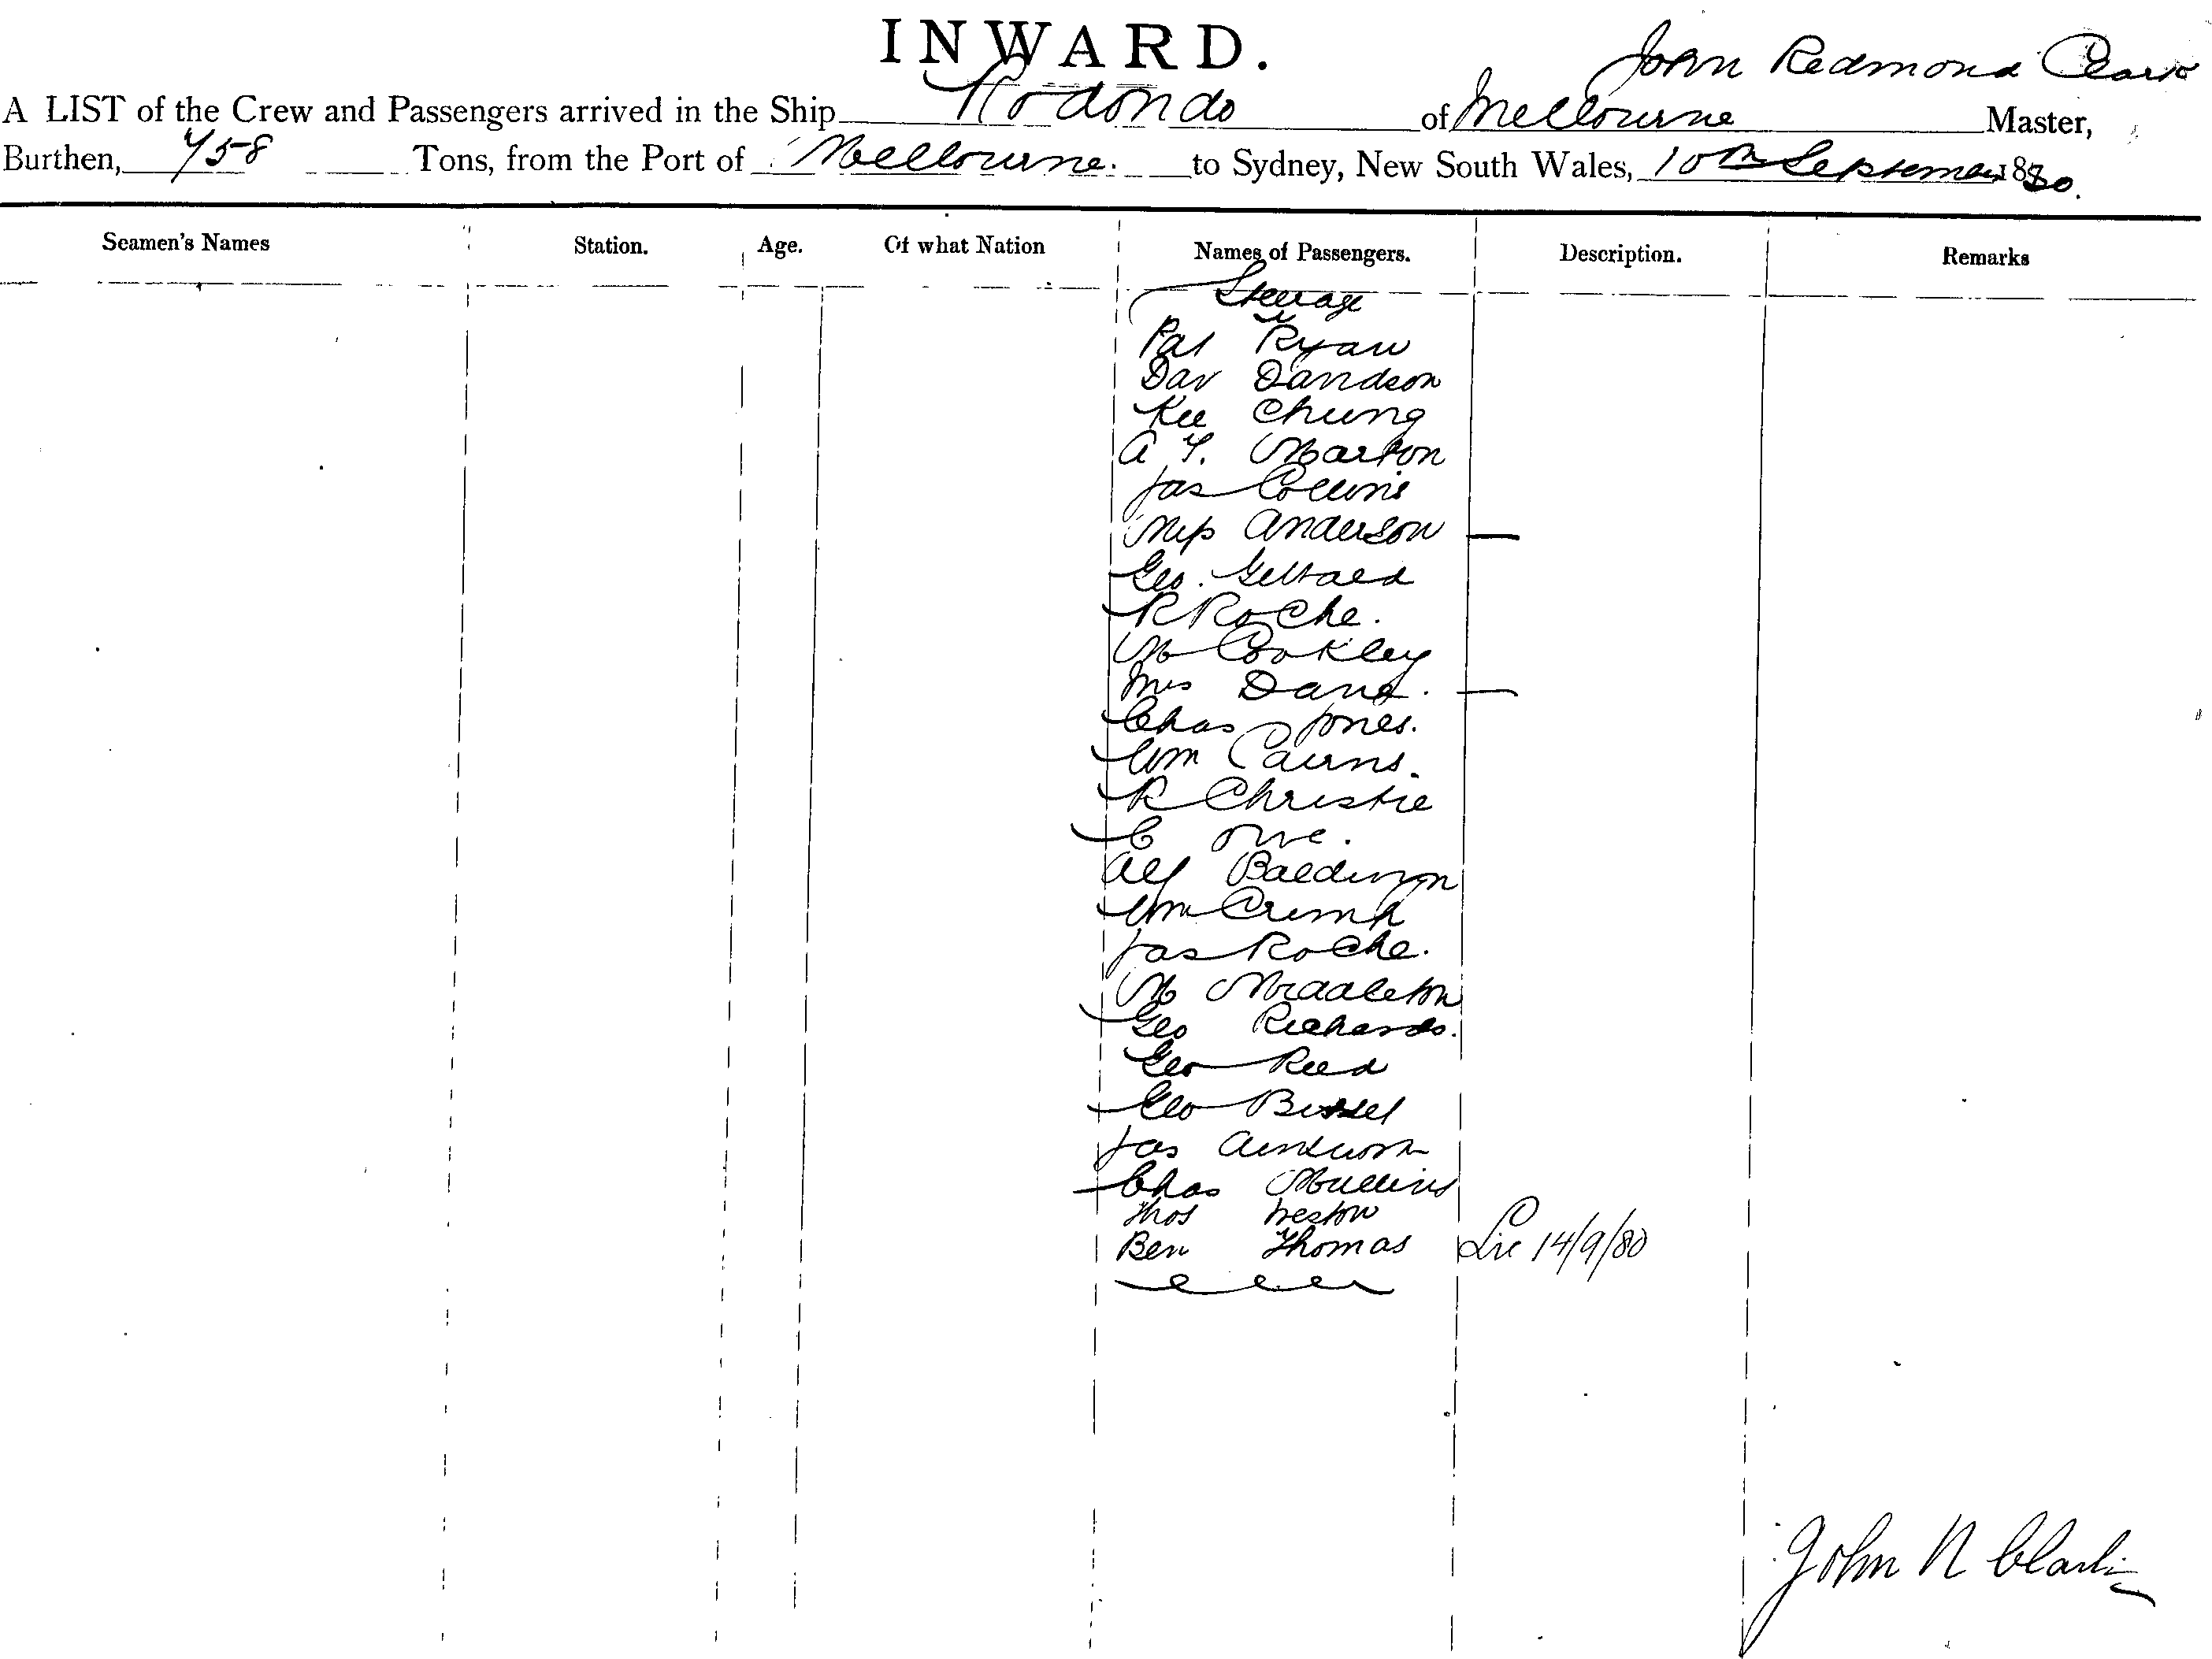 INWARD.
John Redmond Clark
A LIST of the Crew and Passengers arrived in the Ship Rodondo of Melbourne Master,
Burthen, 758 Tons, from the Port of Melbourne. to Sydney, New South Wales, 10th September 1880.
Seamen's Names Station. Age. Of what Nation Names of Passengers. Description. Remarks
Steerage
Pat Ryan
Dav Davidson
Kee Chung
A Y. Marton
Jas Collins
Miss Anderson —
Geo.
R Roche.
M Cookley
Mrs Dang. —
Chas Jones.
Wm Cairns.
R Christie
C
Alf Baldwin
Wm Crump
Jas Roche.
M Middleton
Geo Richards.
Geo Reed
Geo Bissel
Jas Ainsworth
Chas Mullins
Thos Weston
Ben Thomas 14/9/80
John R Clark